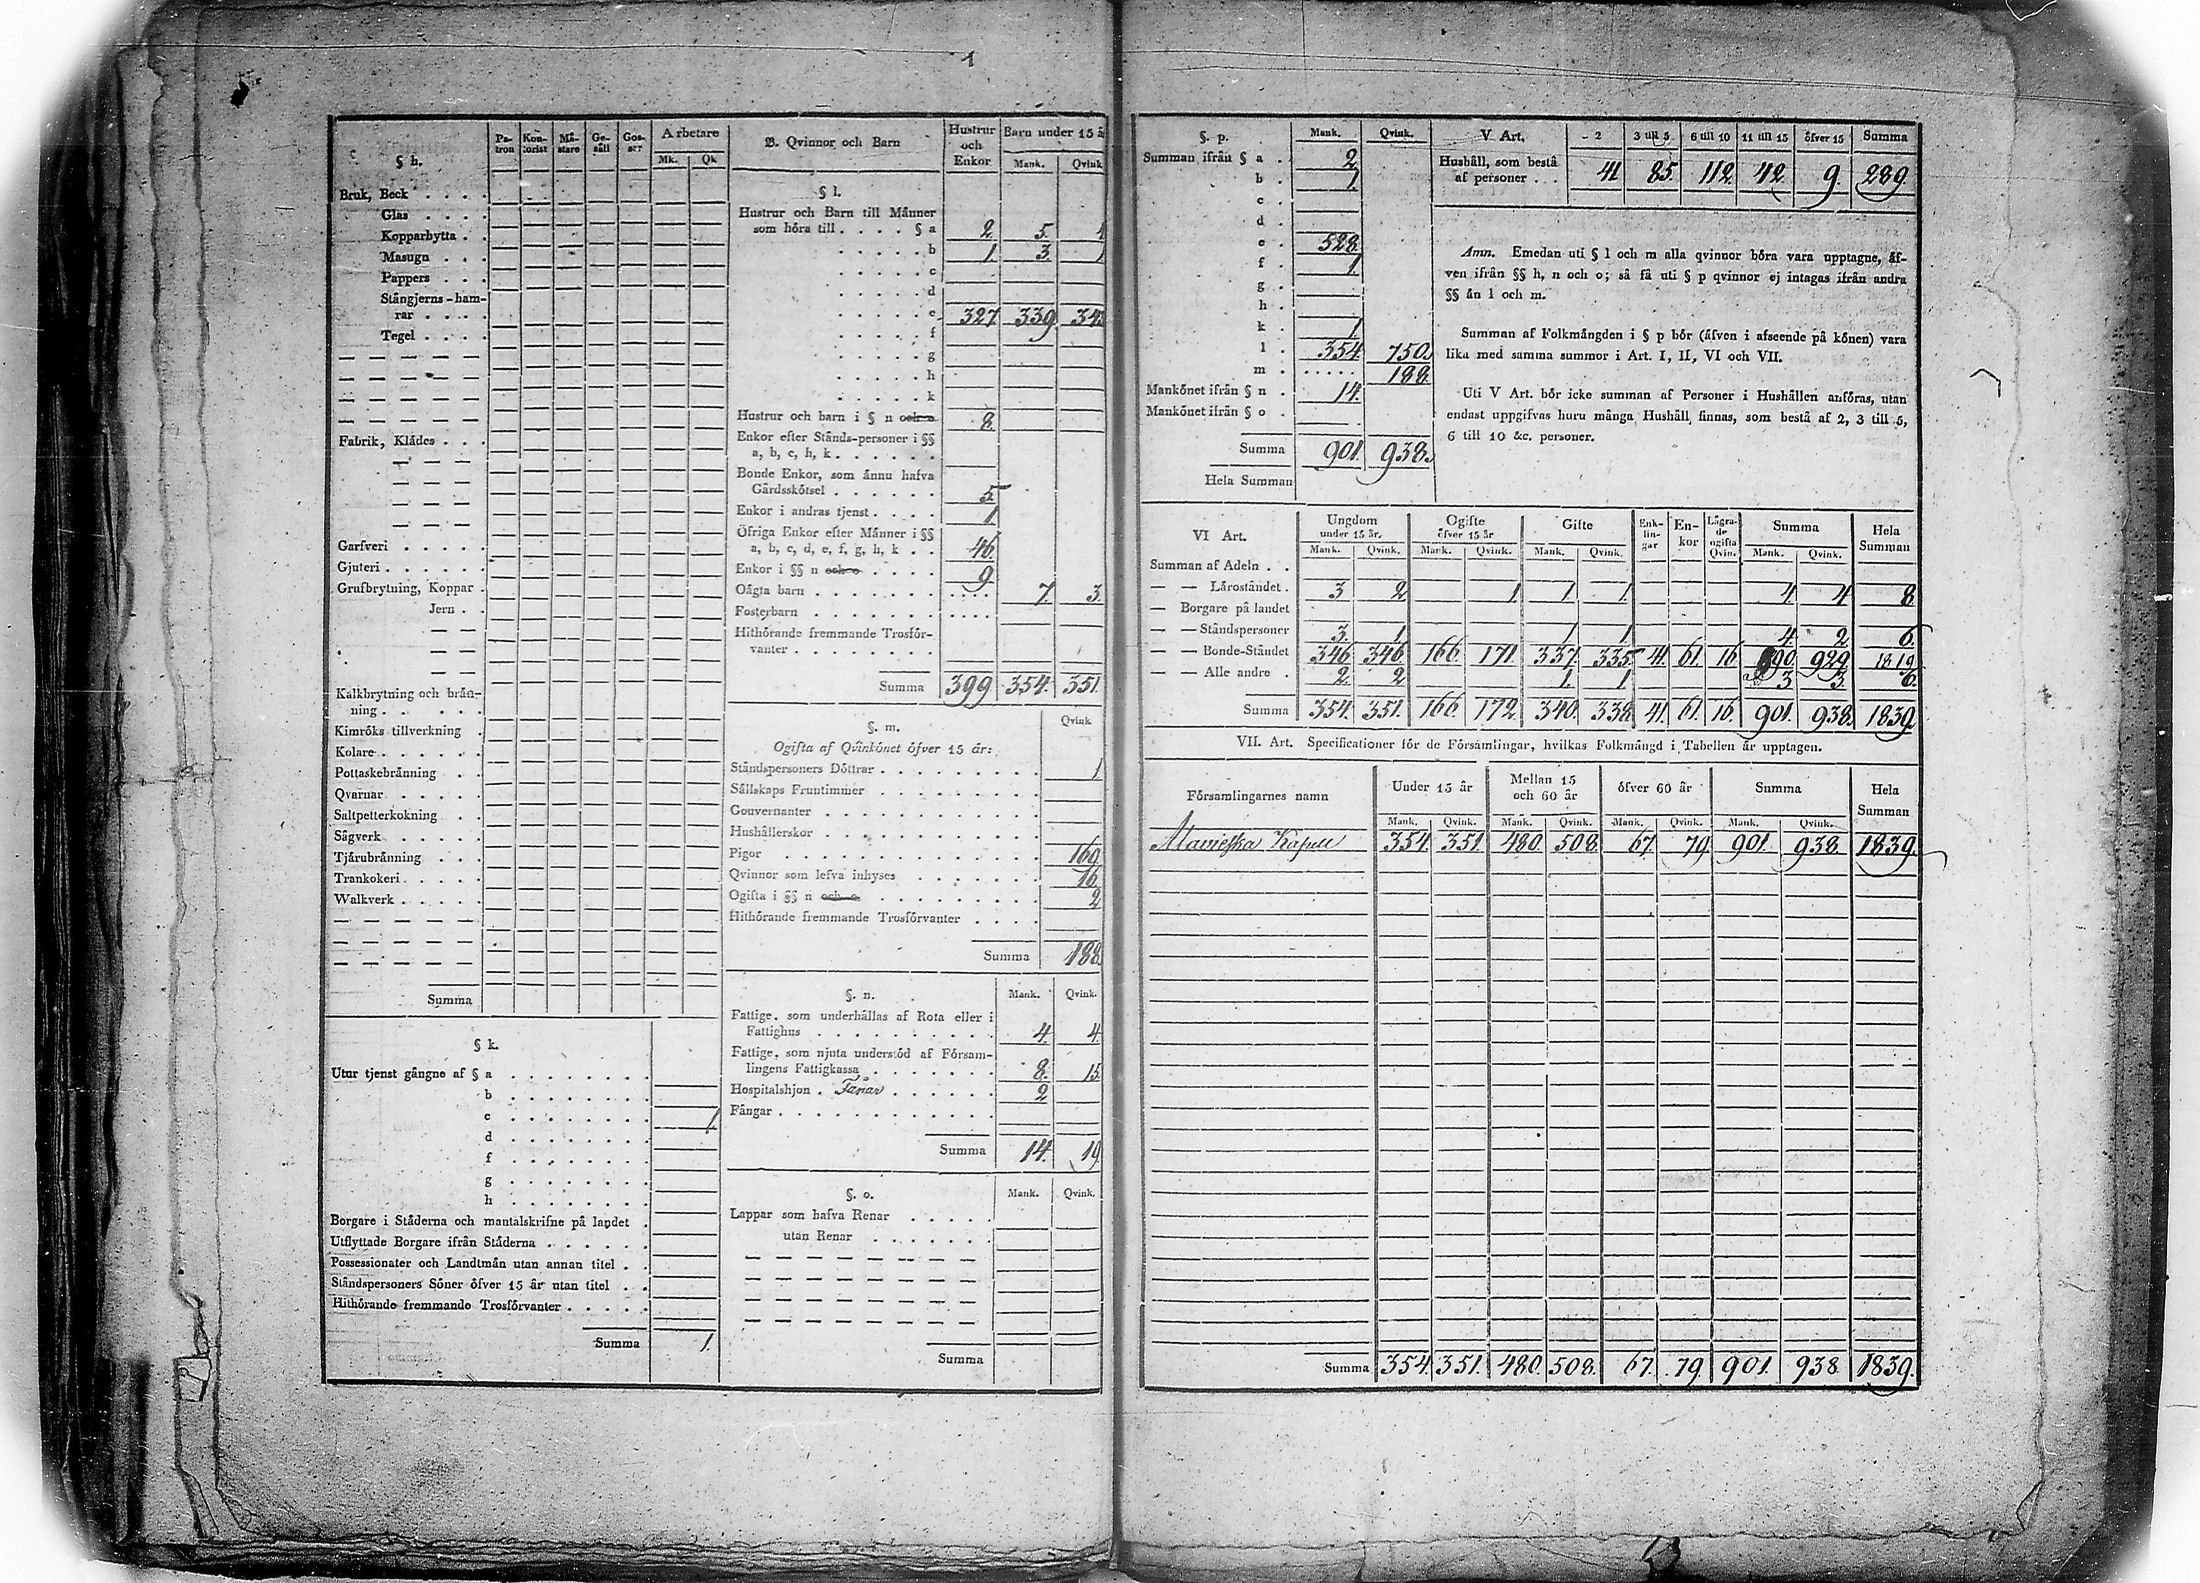 1
§ h.
Pa-tron Kon-torist Må-stare Ge-såll Gos-sar Arbetare
Mk. Qk
Bruk, Beck . . . .
Glas . . . .
Kopparhytta . .
Masugn . . .
Pappers . . .
Stångjerns-ham-
rar . . . .
Tegel . . . .
Fabrik, Klådes . . .
Garfveri . . . . .
Gjuteri . . . . . .
Grufbrytning, Koppar .
Jern . .
Kalkbrytning och brån-
ning . . . . .
Kimröks tillverkning .
Kolare . . . . . .
Pottaskebrånning . .
Qvarnar . . . . .
Saltpetterkokning . .
Sågverk . . . . .
Tjårubrånning . . .
Trankokeri . . . . .
Walkverk . . . . .
Summa
§ k.
Utur tjenst gångne af § a . . . . . . .
b . . . . . . .
c . . . . . . . 1.
d . . . . . . .
f . . . . . . .
g . . . . . . .
h . . . . . . .
Borgare i Ståderna och mantalskrifne på landet .
Utflyttade Borgare ifrån Ståderna . . . . .
Possessionater och Landtmån utan annan titel . .
Ståndspersoners Söner öfver 15 år utan titel . .
Hithörande fremmande Trosförvanter . . . . .
Summa 1.
B. Qvinnor och Barn
Hustrur och Enkor Barn under 15 å
Mank. Qvink
§ l.
Hustrur och Barn till Månner
som höra till . . . . § a 2. 5.
. . . . . b 1. 3. 1
. . . . . c
. . . . . d
. . . . . e 327 339. 343
. . . . . f
. . . . . g
. . . . . h
. . . . . k
Hustrur och barn i § n och o 8.
Enkor efter Stånds-personer i §§
a, b, c, h, k . . . . . .
Bonde Enkor, som ånnu hafva
Gårdsskötsel . . . . . . 5.
Enkor i andras tjenst . . . . 1.
Öfriga Enkor efter Månner i §§
a, b, c, d, e, f, g, h, k . . 46.
Enkor i §§ n och o . . . . . 9
Oågta barn . . . . . . . . 7. 3.
Fosterbarn . . . . . . . .
Hithörande fremmande Trosför-
vanter . . . . . . . .
Summa 399 354. 351.
§. m. Qvink
Ogifta af Qvinkönet öfver 15 år:
Ståndspersoners Döttrar . . . . . . . . . 1
Sållskaps Fruntimmer . . . . . . . . .
Gouvernanter . . . . . . . . . . . .
Hushållerskor . . . . . . . . . . . .
Pigor . . . . . . . . . . . . . 169.
Qvinnor som lefva inhyses . . . . . . . 16.
Ogifta i §§ n och o . . . . . . . . . . 2
Hithörande fremmande Trosförvanter . . . .
Summa 188.
§. n. Mank. Qvink.
Fattige, som underhållas af Rota eller i
Fattighus . . . . . . . . . . 4. 4.
Fattige, som njuta understöd af Församm-
lingens Fattigkassa . . . . . . . 8. 15.
Hospitalshjon . Fånar . . . . . . . 2
Fångar . . . . . . . . . . . .
Summa 14. 19
§. o. Mank. Qvink.
Lappar som hafva Renar . . . . .
utan Renar . . . . . . .
Summa
§. p. Mank. Qvink.
Summan ifrån § a . 2.
b . 1.
c .
d .
e . 528.
f . 1.
g .
h .
k . 1.
l . 354. 750.
m . . . . . . 188.
Mankönet ifrån § n . 14.
Mankönet ifrån § o .
Summa 901. 938.
Hela Summan
V Art. - 2 3 till 5 6 till 10 11 till 15 öfver 15 Summa
Hushåll, som bestå
af personer . . . 41 85. 112. 42. 9. 289.
Anm. Emedan uti § l och m alla qvinnor böra vara upptagne, åf-
ven ifrån §§ h, n och o; så få uti § p qvinnor ej intagas ifrån andra
§§ ån l och m.
Summan af Folkmångden i § p bör (åfven i afseende på könen) vara
lika med samma summor i Art. I, II, VI och VII.
Uti V Art. bör icke summan af Personer i Hushållen anföras, utan
endast uppgifvas huru många Hushåll finnas, som bestå af 2, 3 till 5,
6 till 10 &c. personer.
VI Art. Ungdom under 15 år. Ogifte öfver 15 år Gifte Enk-lin-gar En-kor Lågra-de ogifta Qvin. Summa Hela Summan
Mank. Qvink. Mank. Qvink. Mank. Qvink. Mank. Qvink.
Summan af Adeln . .
— — Låroståndet . 3 2 1 1 1 4. 4. 8.
— Borgare på landet
— — Ståndspersoner 3. 1. 1. 1. 4. 2. 6.
— — Bonde-Ståndet 346. 346. 166. 171. 337. 335. 41. 61. 16. 890. 929. 1819.
— — Alle andre . 2. 2 1. 1 3 3. 6.
Summa 354. 351. 166. 172. 340. 338. 41. 61. 16. 901. 938. 1839.
VII. Art. Specificationer för de Församlingar, hvilkas Folkmångd i Tabellen år upptagen.
Församlingarnes namn Under 15 år Mellan 15 och 60 år öfver 60 år Summa Hela Summan
Mank. Qvink. Mank. Qvink. Mank. Qvink. Mank. Qvink.
Alavieska Kapell 354. 351. 480. 508. 67. 79. 901. 938. 1839.
Summa 354. 351. 480. 508. 67. 79. 901. 938 1839.